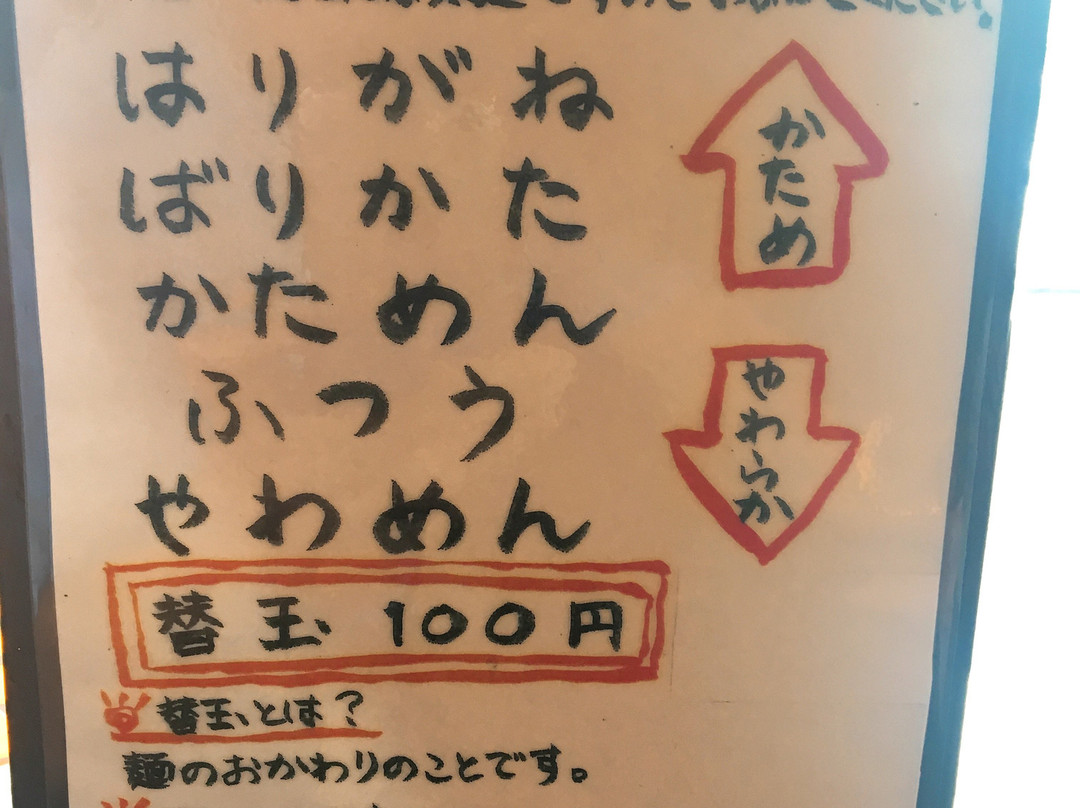 はりがね
ばりかた
かためん
ふつう
やわめん
かため
やわらか
替玉 100円
替玉とは?
麺のおかわりのことです。